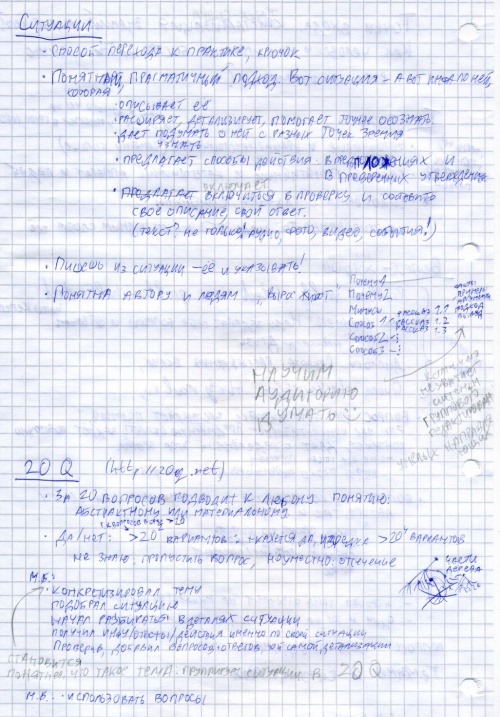 СИТУАЦИИ
• СПОСОБ ПЕРЕХОДА К ПРАКТИКЕ, КРЮЧОК
• ПОНЯТНЫЙ, ПРАГМАТИЧНЫЙ ПОДХОД. ВОТ СИТУАЦИЯ – А ВОТ ИНФА ПО НЕЙ,
КОТОРАЯ
• ОПИСЫВАЕТ ЕЁ
• РАСШИРЯЕТ, ДЕТАЛИЗИРУЕТ, ПОМОГАЕТ ТОЧНЕЕ ОСОЗНАТЬ
• ДАЕТ ПОДУМАТЬ О НЕЙ С РАЗНЫХ ТОЧЕК ЗРЕНИЯ
УЗНАТЬ
• ПРЕДЛАГАЕТ СПОСОБЫ ДЕЙСТВИЯ В ПРЕДПОЛОЖЕНИЯХ И
В ПРОВЕРЕННЫХ УТВЕРЖДЕНИЯХ
• ПРЕДЛАГАЕТ ВКЛЮЧИТЬСЯ В ПРОВЕРКУ И СОСТАВИТЬ
СВОЁ ОПИСАНИЕ, СВОЙ ОТВЕТ.
(ТЕКСТ? НЕ ТОЛЬКО! АУДИО, ФОТО, ВИДЕО, СОБЫТИЯ!)
• ПИШЕШЬ ИЗ СИТУАЦИИ – ЕЁ И УКАЗЫВАТЬ!
• ПОНЯТНА АВТОРУ И ЛЮДЯМ
ПОЧЕМУ 1
ПОЧЕМУ 2
МИНУСЫ
СПОСОБ 1 РАССКАЗ 1.1
РАССКАЗ 1.2
РАССКАЗ 1.3
СПОСОБ 2
СПОСОБ 3
НАУЧИМ
АУДИТОРИЮ
ДУМАТЬ
20 Q (http://20q.net)
• ЗА 20 ВОПРОСОВ ПОДВОДИТ К ЛЮБОМУ ПОНЯТИЮ:
АБСТРАКТНОМУ ИЛИ МАТЕРИАЛЬНОМУ
• ДА/НЕТ: >20 ВАРИАНТОВ
НЕ ЗНАЮ, ПРОПУСТИТЬ ВОПРОС, НЕУМЕСТНО
ЧАСТИ
ДЕРЕВА
М.Б.:
• КОНКРЕТИЗИРОВАЛ ТЕМУ
ПОДОБРАЛ СИТУАЦИЮ
НАЧАЛ РАЗБИРАТЬСЯ В ДЕТАЛЯХ СИТУАЦИИ
ПОЛУЧИЛ ИНФУ/ОТВЕТЫ/ДЕЙСТВИЯ ИМЕННО ПО СВОЕЙ СИТУАЦИИ
ПРОВЕРИВ, ДОБАВИЛ ВОПРОСОВ-ОТВЕТОВ
СТАНОВИТСЯ
ПОНЯТНО, ЧТО ТАКОЕ ТЕМА. ГРУППИРУЕТ СИТУАЦИИ В 20Q
М.Б.: • ИСПОЛЬЗОВАТЬ ВОПРОСЫ